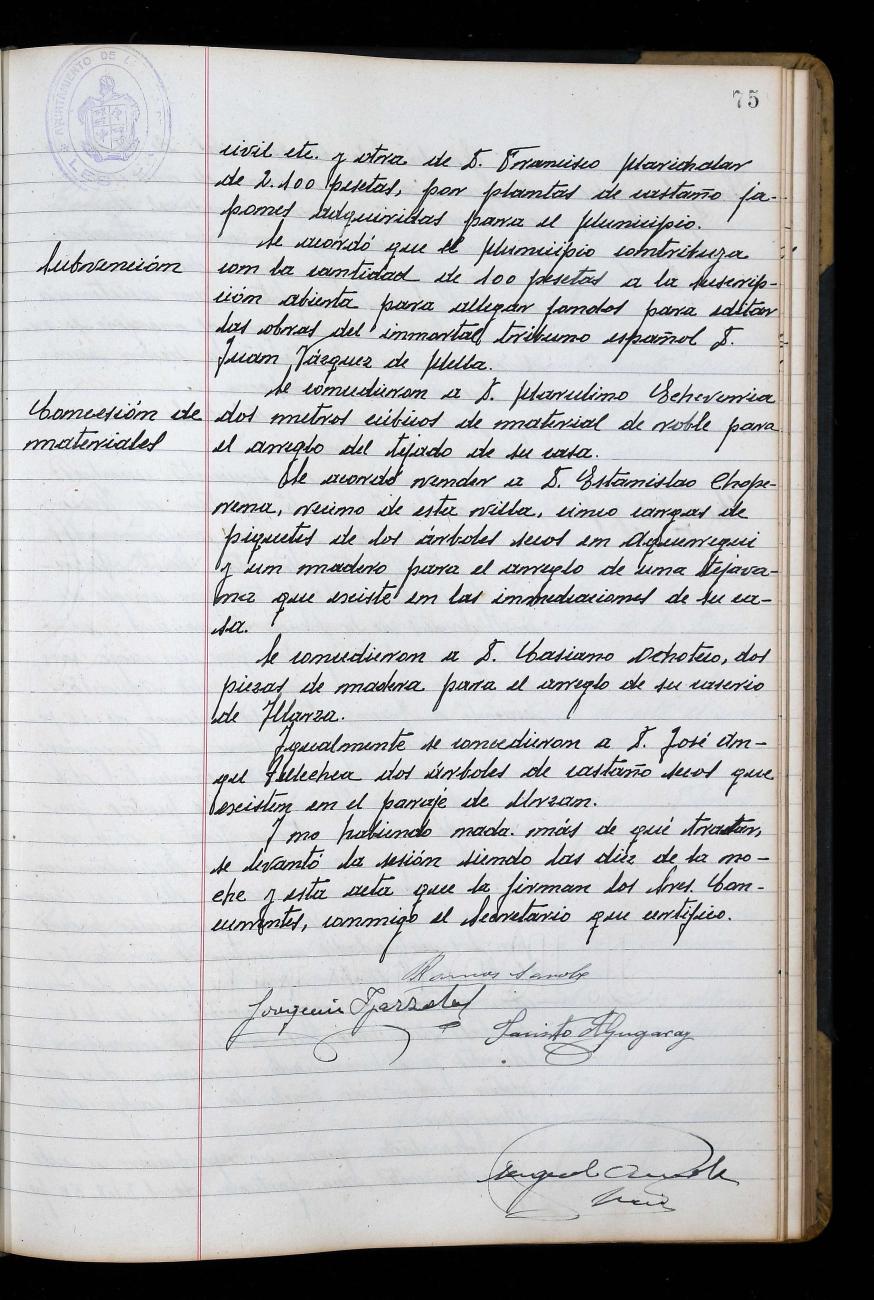 75
AYUNTAMIENTO DE
civil etc. y otra de D. Francisco Marichalar
de 2.100 pesetas, por plantas de castaño ja-
pones adquiridas para el Municipio.
Subvención
Se acordó que el Municipio contribuya
con la cantidad de 100 pesetas a la suscrip-
ción abierta para allegar fondos para editar
las obras del inmortal tribuno español D.
Juan Vázquez de Mella.
Concesión de
materiales
Se concedieron a D. Marcelino Echeverria
dos metros cúbicos de material de roble para
el arreglo del tejado de su casa.
Se acordó vender a D. Estanislao Chope-
rena, vecino de esta villa, cinco cargas de
piquetes de los árboles secos en Aguerregui
y un madero para el arreglo de una tejava-
na que existe en las inmediaciones de su ca-
sa.
Se concedieron a D. Casiano Ochoteco, dos
piezas de madera para el arreglo de su caserio
de Illarza.
Igualmente se concedieron a D. José An-
gel Tellechea dos árboles de castaño secos que
existen en el paraje de Urzan.
Y no habiendo nada más de qué tratar,
se levantó la sesión siendo las diez de la no-
che y esta acta que la firman los Sres. Con-
currentes, conmigo el Secretario que certifico.
Ramos
Joaquin
Fausto
Miguel